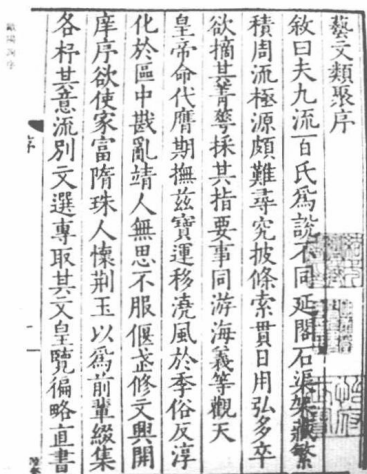 藝文類聚序
敘曰夫九流百氏爲說不同延閣石渠架藏繁
積周流極源頗難尋究披條索貫日用弘多卒
欲摘其菁華採其指要事同游海義等觀天
皇帝命代膺期撫茲寶運移澆風於季俗反淳
化於區中戡亂靖人無思不服偃武修文興開
庠序欲使家富隋珠人懷荆玉以爲前輩綴集
各杼其意流別文選專取其文皇覽徧略直書
序
一